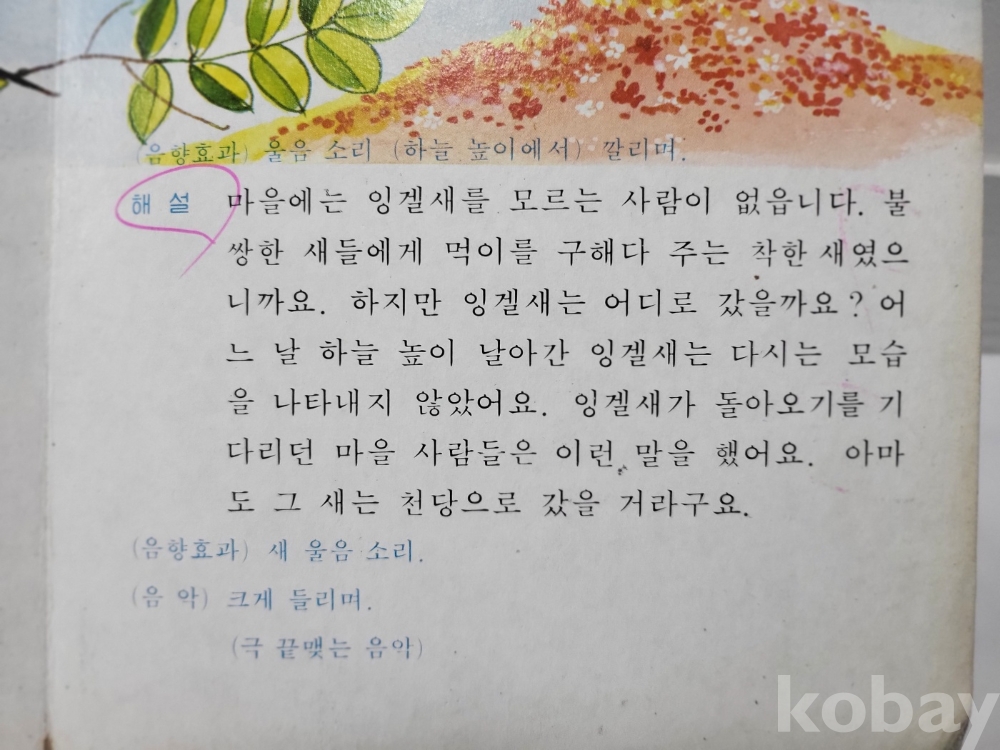 (음향효과) 울음 소리 (하늘 높이에서) 깔리며.
해 설 마을에는 잉겔새를 모르는 사람이 없읍니다. 불
쌍한 새들에게 먹이를 구해다 주는 착한 새였으
니까요. 하지만 잉겔새는 어디로 갔을까요? 어
느 날 하늘 높이 날아간 잉겔새는 다시는 모습
을 나타내지 않았어요. 잉겔새가 돌아오기를 기
다리던 마을 사람들은 이런 말을 했어요. 아마
도 그 새는 천당으로 갔을 거라구요.
(음향효과) 새 울음 소리.
(음 악) 크게 들리며.
(극 끝맺는 음악)
kobay